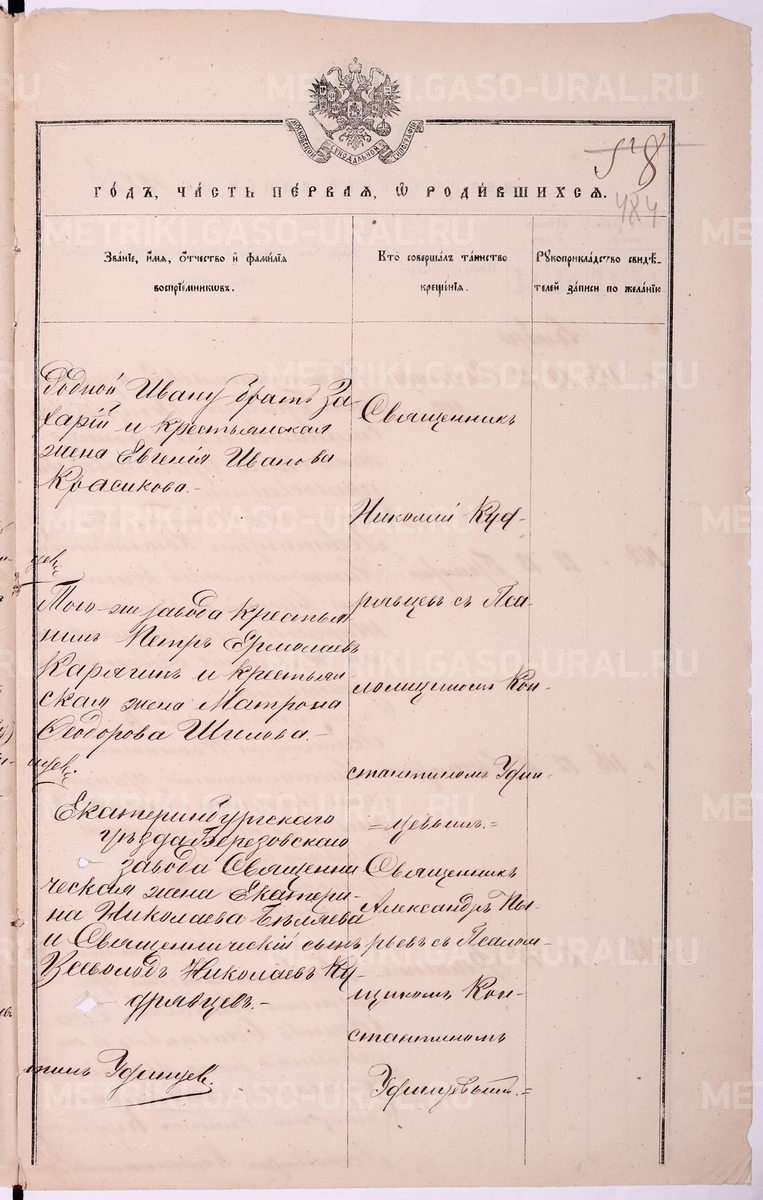 МОСКОВСКОЙ СѴНОДАЛЬНОЙ ТИПОГРАФІИ
518
484
ГОДЪ, ЧАСТЬ ПЕРВАЯ, Ѡ РОДИВШИХСЯ.
Званіе, имя, отчество и фамилія
воспріемниковъ.
Кто совершалъ таинство
крещенія.
Рукоприкладство свидѣ-
телей записи по желанію
Родной Ивану братъ За-
харій и крестьянская
жена Евгенія Иванова
Красикова.-
Того-же завода крестья
нинъ Петръ Ермолаевъ
Карягинъ и крестьян
ская жена Матрона
Ѳеодорова Шилова.-
Екатеринбургскаго
уѣзда Березовскаго
завода Священни
ческая жена Екатери-
на Николаева Бѣляева
и Священническій сынъ
Всеволодъ Николаевъ Ку-
дрявцевъ.-
тинъ Уфинцев.
Священникъ
Николай Куд-
рявцевъ съ Пса-
ломщикомъ Кон-
стантиномъ Уфин-
=цевымъ.=
Священникъ
Александръ Пы-
рьевъ съ Псалом-
щикомъ Кон-
стантиномъ
Уфинцевымъ.=
METRIKI.GASO-URAL.RU